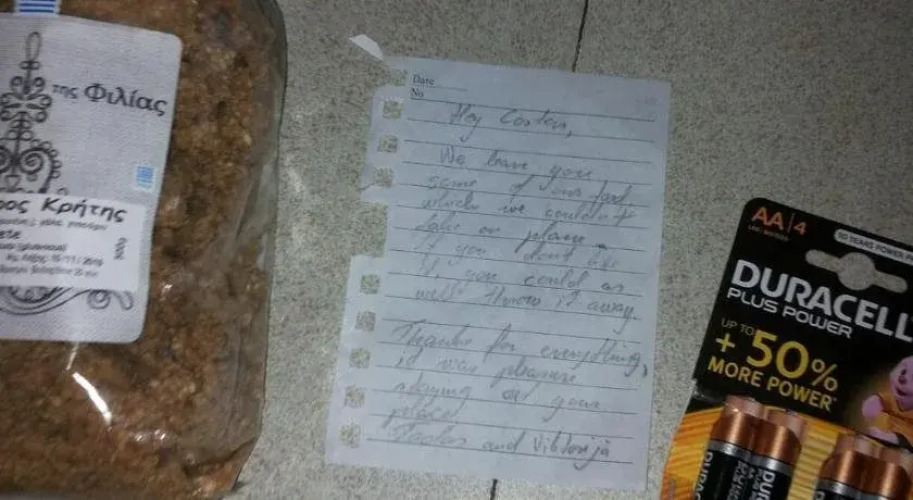 της Φιλίας
ρος Κρήτης
ete
Date
No
Hey Costas,
We leave you
some of our food,
which we couldn't
take on plane.
If you dont like
it, you could as
well throw it away.
Thanks for everything,
it was pleasure
staying at your
place
and Viktorija
AA 4
10 YEARS POWER
DURACELL
PLUS POWER
UP TO
+50%
MORE POWER*
DURACELL